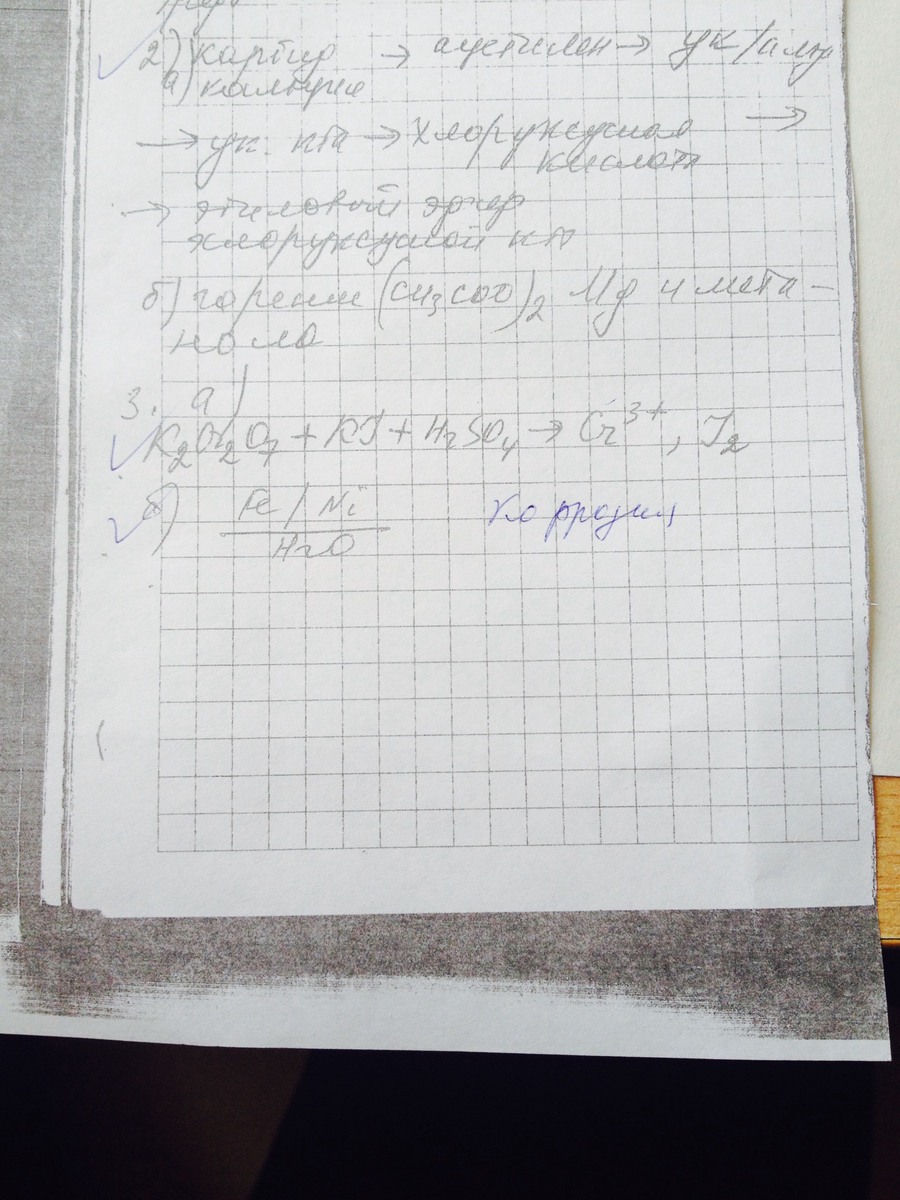 2) карбид → ацетилен → ук/альд
а) кальция
→ ук. к-та → хлоруксусная →
кислота
→ этиловый эфир
хлоруксусной к-ты
б) горение (CH₃COO)₂ Mg и мета-
нола
3. а)
K₂Cr₂O₇ + KJ + H₂SO₄ → Cr³⁺, J₂
б) Fe / Ni Коррозия
H₂O